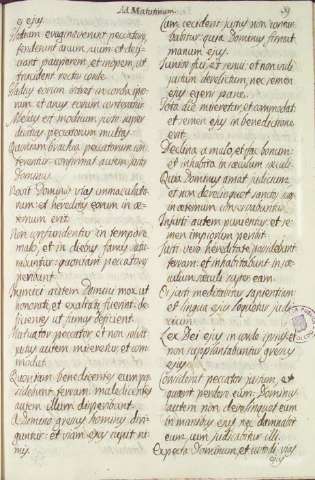 Ad Matutinum.
39
q ejy.
Gladium evaginaverunt peccatores,
tenderunt arcum suum et deji-
ciant pauperem, et inopem, ut
trucident rectos corde.
Gladiy eorum intret in corda ipso-
rum et arcus eorum conteratur.
Meliy est modicum justo super
divitias peccatorum multas.
Quoniam brachia peccatorum con-
terentur confirmat autem justos
Dominy.
Novit Dominy vias immaculato-
rum et hereditas eorum in æ-
ternum erit.
Non confundentur in tempore
malo, et in dieby famis satu-
rabuntur quoniam peccatores
peribunt.
Inimici autem Domini mox ut
honorati et exaltati fuerint defi-
cientes ut fumy deficient.
Mutuatur peccator et non solvet
justy autem miseretur et com-
modat.
Quoniam benedicentes eum he-
redebunt terram, maledicentes
autem illum disperibunt.
A Domino gressy hominy diri-
guntur et viam ejy cupit ni-
mis.
Cum ceciderit justy non conlisi-
dabitur quia Dominy firmat
manum ejy.
Junior fui, et senui et non vidi
justum derelictum, nec semen
ejy egens pane.
Tota die miseretur et commodat
et semen ejy in benedictione
erit.
Declina a malo, et fac bonum
et inhabita in sæculum sæculi.
Quia Dominy amat judicium
et non derelinquet sanctos suos
in æternum conservabuntur.
Injusti autem punientur et se-
men impiorum peribit.
Justi vero hereditate possidebunt
terram et inhabitabunt in sæ-
culum sæculi super eam.
Os justi meditabitur sapientiam
et lingua ejy loquetur judi-
cium.
Lex Dei ejy in corde ipsiy et
non supplantabuntur gressy
ejy.
Considerat peccator justum, et
quærit perdere eum. Dominy
autem non derelinquet eum
in manibus ejy nec damnabit
eum, cum judicabitur illi.
Expecta Dominum, et custodi vias
ejy